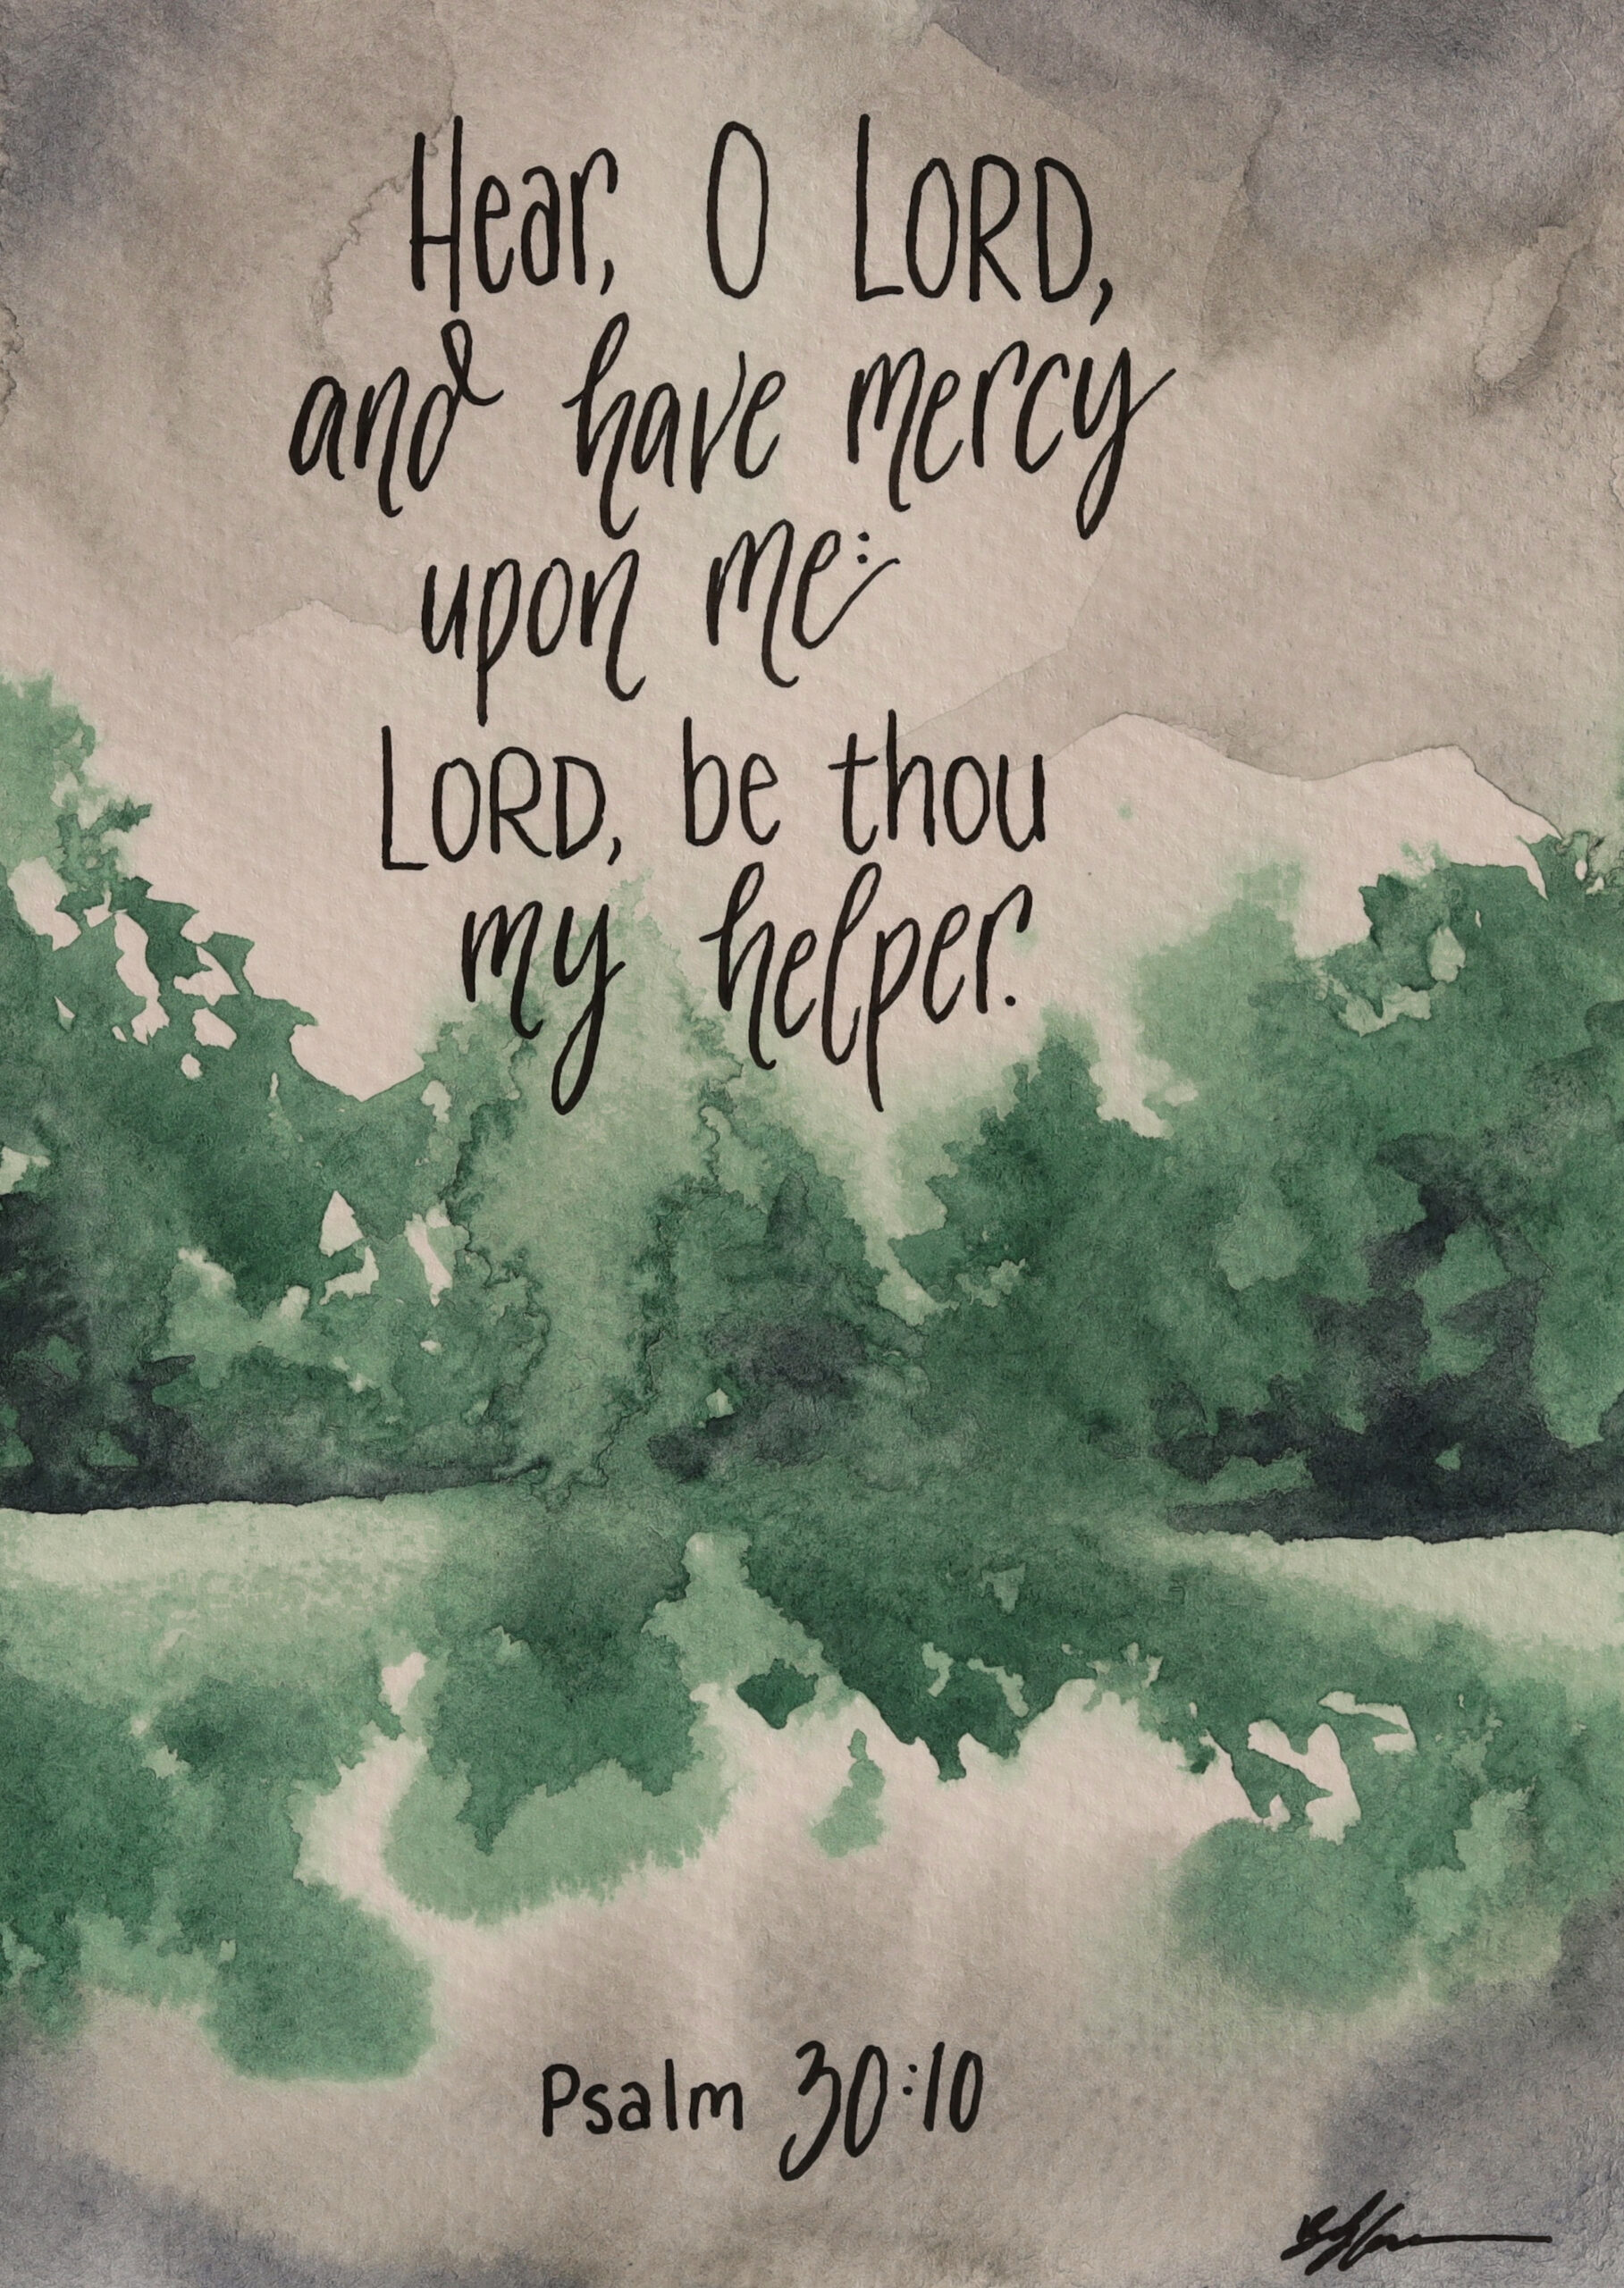 Hear, O LORD,
and have mercy
upon me:
LORD, be thou
my helper.
Psalm 30:10